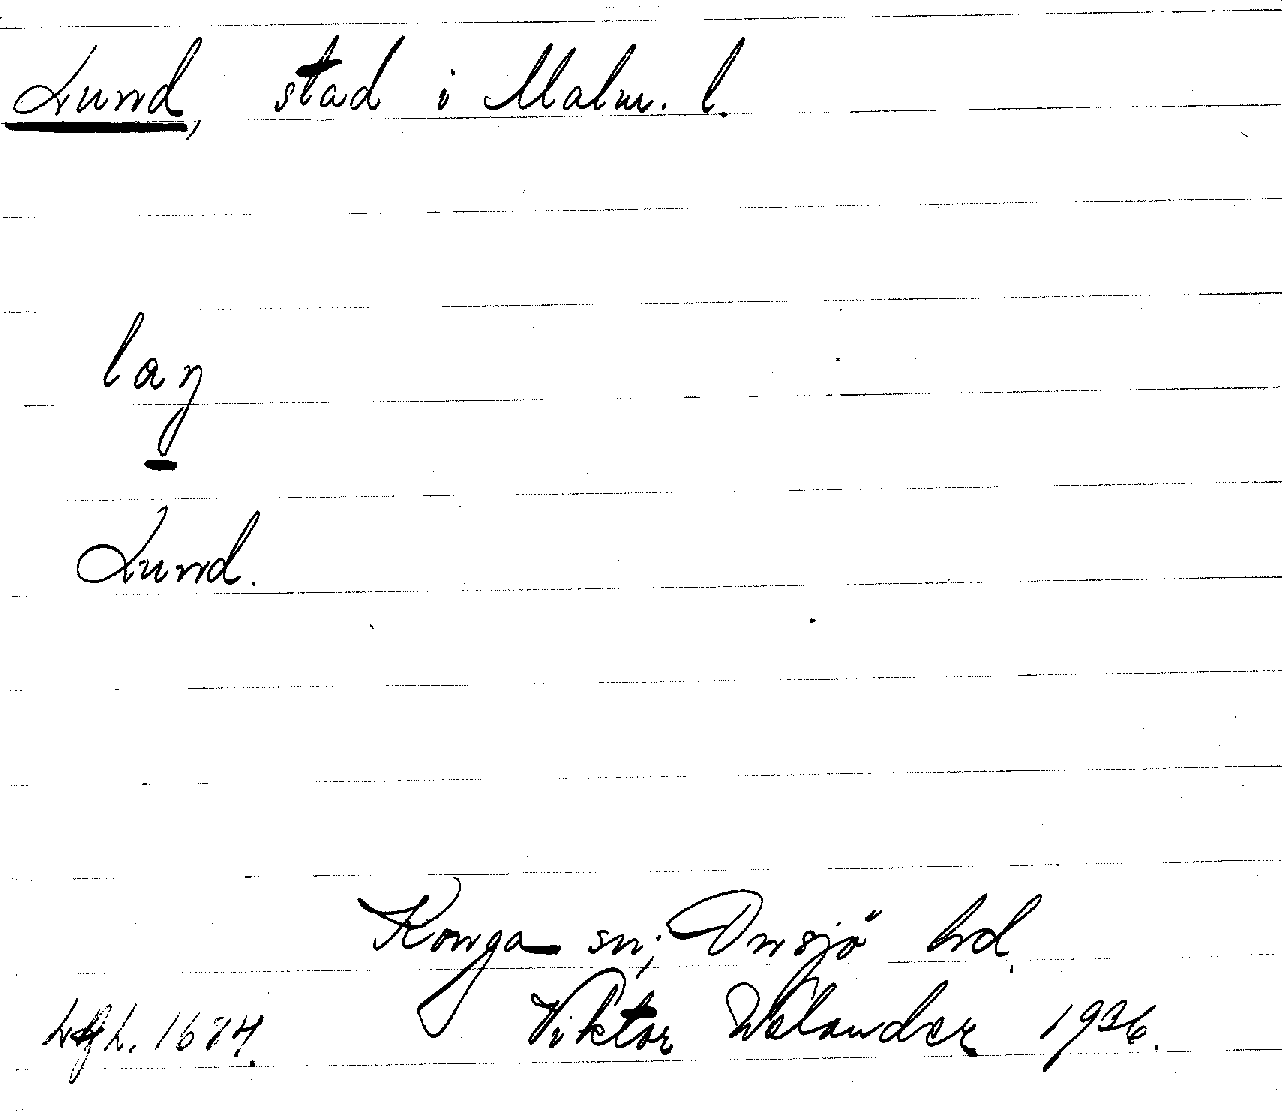 Lund, stad i Malm. l.
laŋ
Lund.
Konga sn; Onsjö hd.
Viktor Welander 1936.